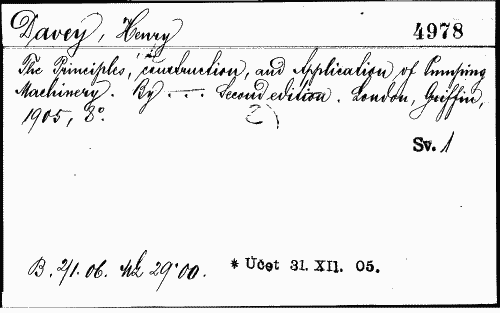 Davey, Henry
4978
The Principles, construction, and Application of Pumping
Machinery. By .... Second edition. London, Griffin,
1905, 8°.
2)
Sv. 1
B. 2/1. 06. 29·00.
* Účet 31. XII. 05.